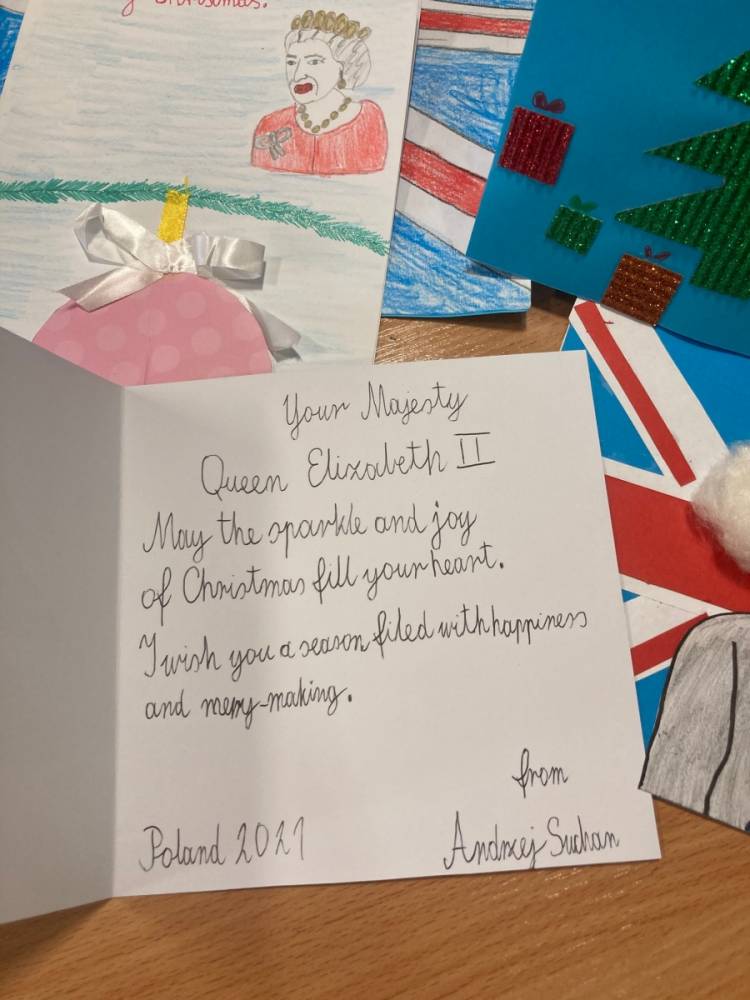 Christmas.
Your Majesty
Queen Elizabeth II
May the sparkle and joy
of Christmas fill your heart.
I wish you a season filed with happiness
and merry-making.
from
Poland 2021 Andrzej Suchan